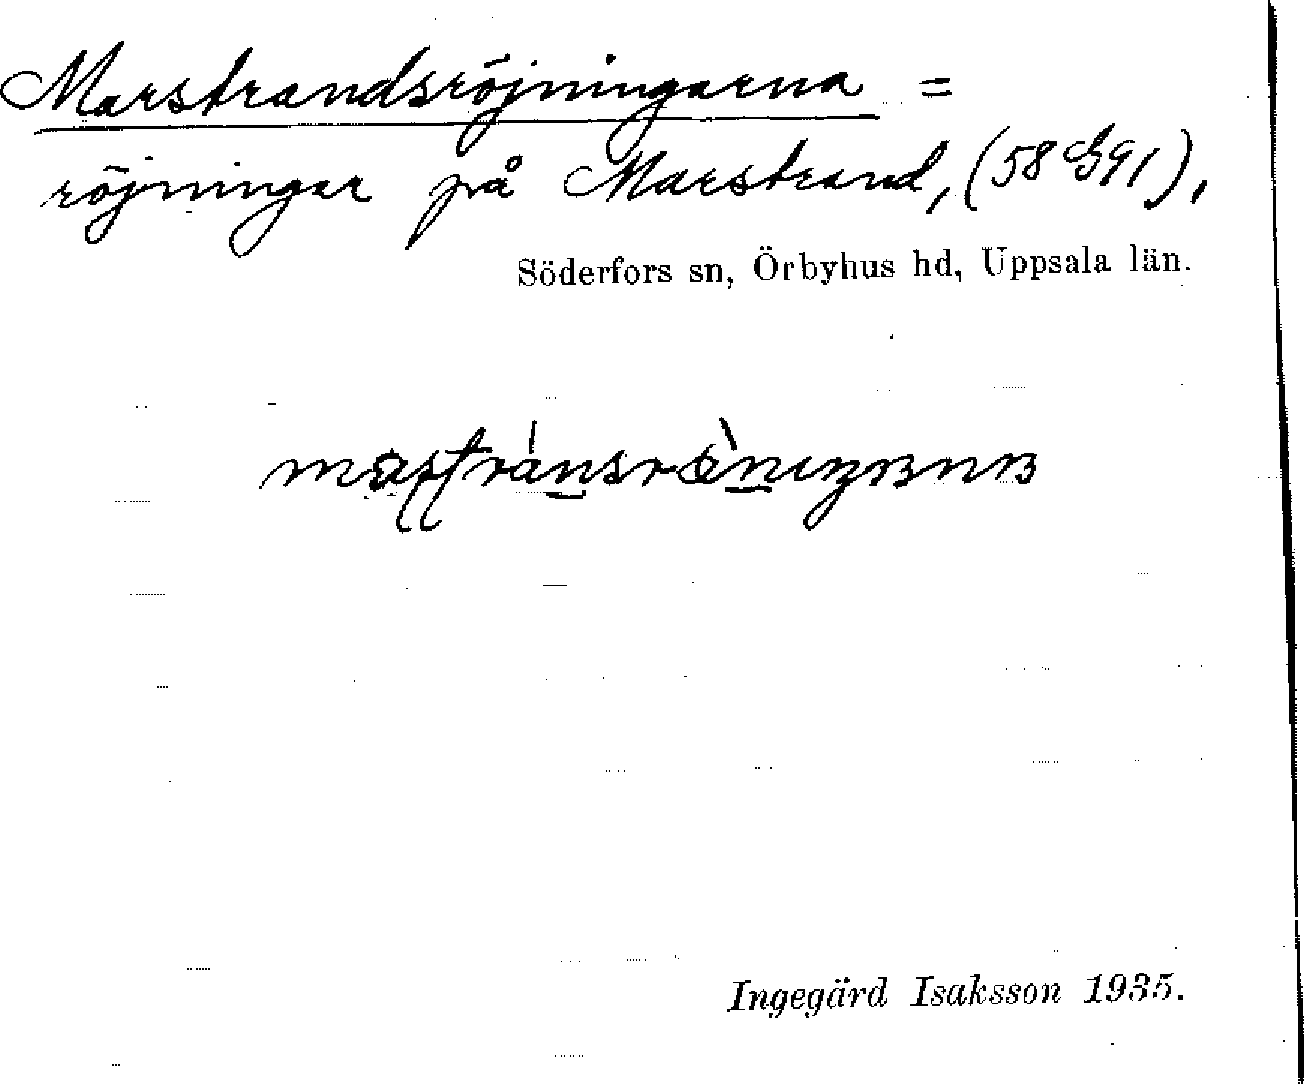 Marstrandsröjningarna =
röjningar på Marstrand, (58 G 91),
Söderfors sn, Örbyhus hd, Uppsala län.
Ingegärd Isaksson 1935.